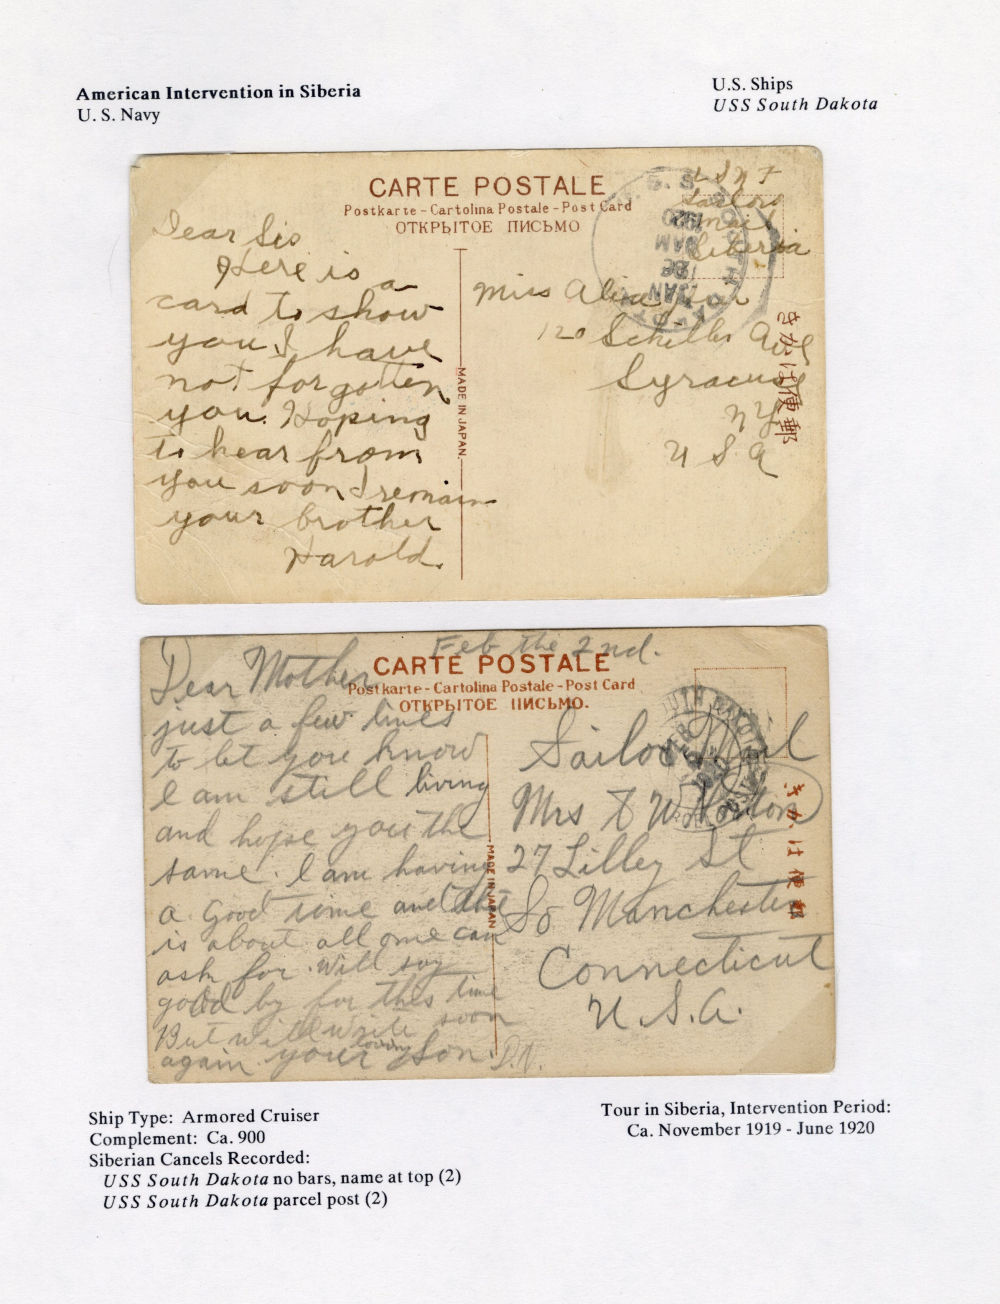 American Intervention in Siberia
U. S. Navy
U.S. Ships
USS South Dakota
CARTE POSTALE
Postkarte - Cartolina Postale - Post Card
ОТКРЫТОЕ ПИСЬМО
Sailors
mail
Siberia
U. S. S. SOUTH DAKOTA
JAN
26
8 AM
1920
Dear Sis
Here is a
card to show
you I have
not forgotten
you. Hoping
to hear from
you soon I remain
your brother
Harold.
MADE IN JAPAN.
Miss
120 Schiller Ave
Syracuse
NY
U S A
きかは便郵
Feb the 2nd.
CARTE POSTALE
Postkarte - Cartolina Postale - Post Card
ОТКРЫТОЕ ПИСЬМО.
Dear Mother
just a few lines
to let you know
I am still living
and hope you the
same. I am having
a good time and that
is about all one can
ask for. Will say
good by for this time
But will write soon
again. your loving Son.
MADE IN JAPAN
Sailor Mail
Mrs
27 Lilley St
So Manchester
Connecticut
U.S.A.
きかは便郵
Ship Type: Armored Cruiser
Complement: Ca. 900
Siberian Cancels Recorded:
USS South Dakota no bars, name at top (2)
USS South Dakota parcel post (2)
Tour in Siberia, Intervention Period:
Ca. November 1919 - June 1920